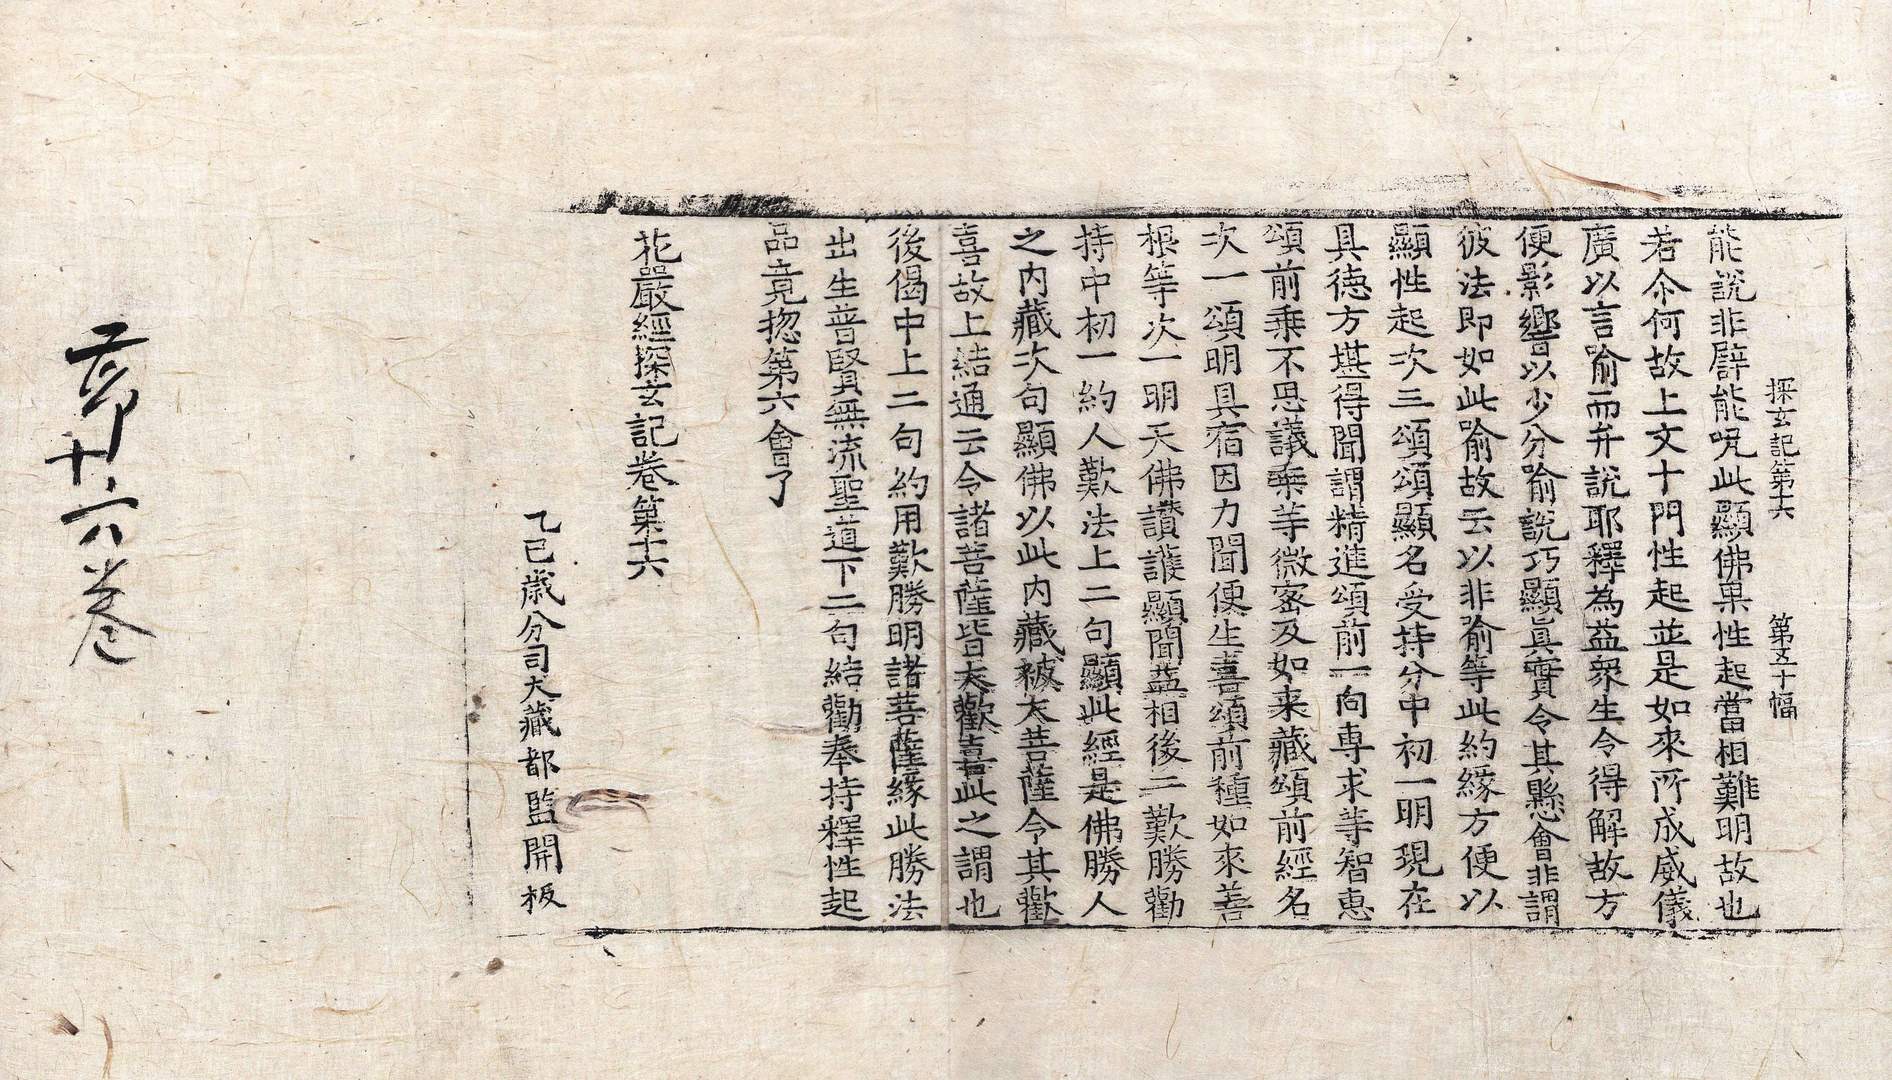 探玄記第十六 第五十幅
能說非譬能呪此顯佛果性起當相難明故也
若尒何故上文十門性起並是如來所成威儀
廣以言喻而弁說耶釋為益衆生令得解故方
便影響以少分喻說巧顯眞實令其懸會非謂
彼法即如此喻故云以非喻等此約緣方便以
顯性起次三頌頌顯名受持分中初一明現在
具德方堪得聞謂精進頌前一向專求等智惠
頌前乗不思議乗等微宻及如来藏頌前經名
次一頌明具宿因力聞便生喜頌前種如來善
根等次一明天佛讃護顯聞益相後二歎勝勸
持中初一約人歎法上二句顯此經是佛勝人
之內藏次句顯佛以此內藏被大菩薩令其歡
喜故上結通云令諸菩薩皆大歡喜此之謂也
後偈中上二句約用歎勝明諸菩薩緣此勝法
出生普賢無流聖道下二句結勸奉持釋性起
品竟揔第六會了
花嚴經探玄記卷第十六
乙巳歲分司大藏都監開板
十六卷